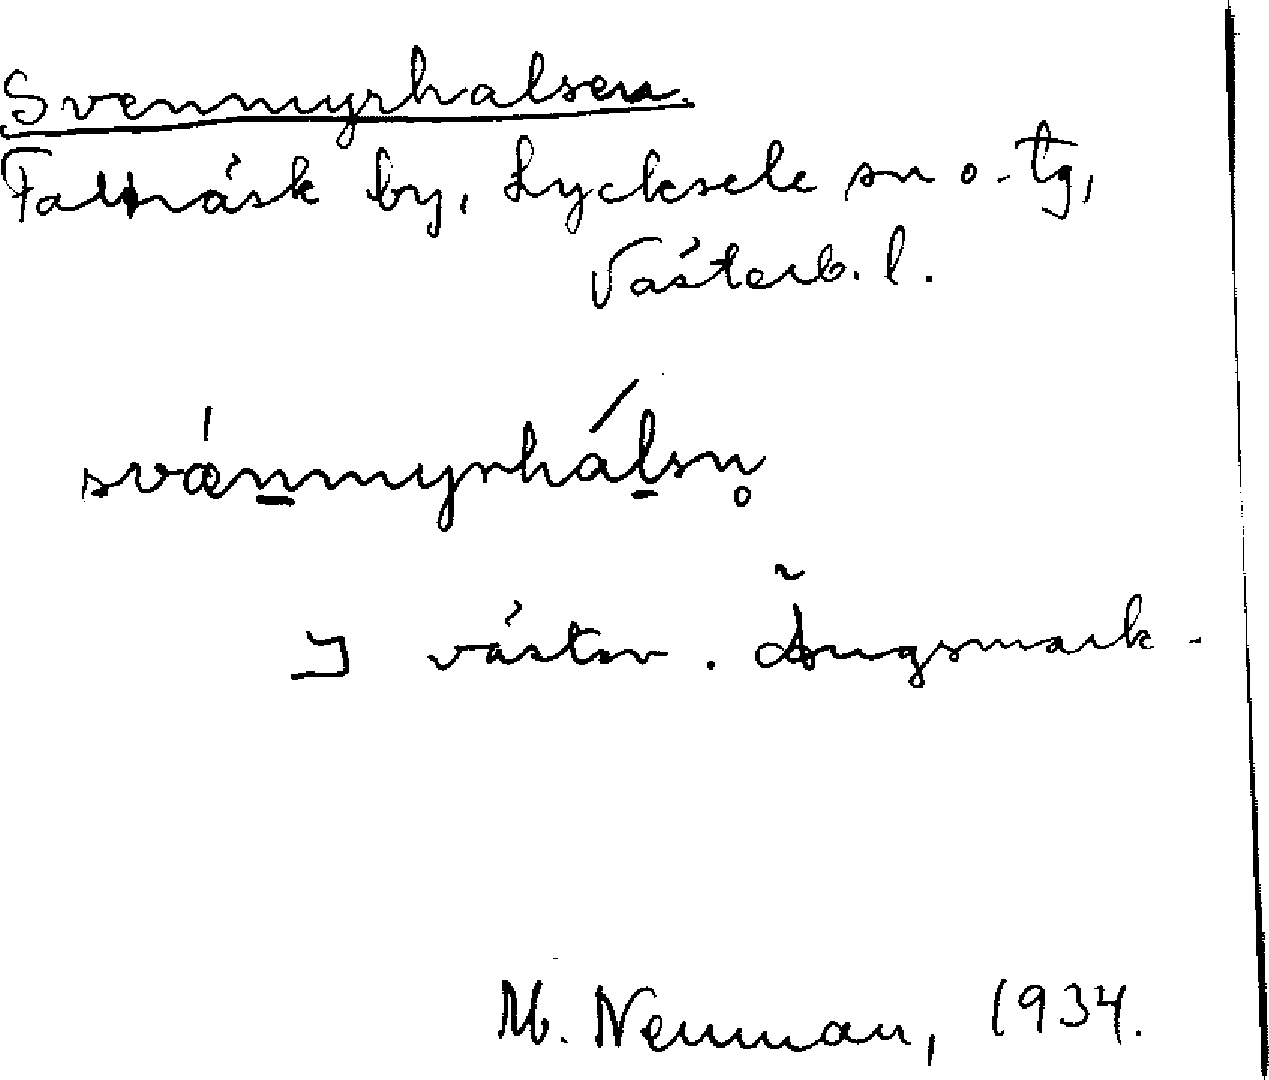 Svenmyrhalsen.
Falträsk by, Lycksele sn o. tg,
Västerb. l.
svænmyrhálsn̥
västov. Ängsmark.
M. Neuman, 1934.